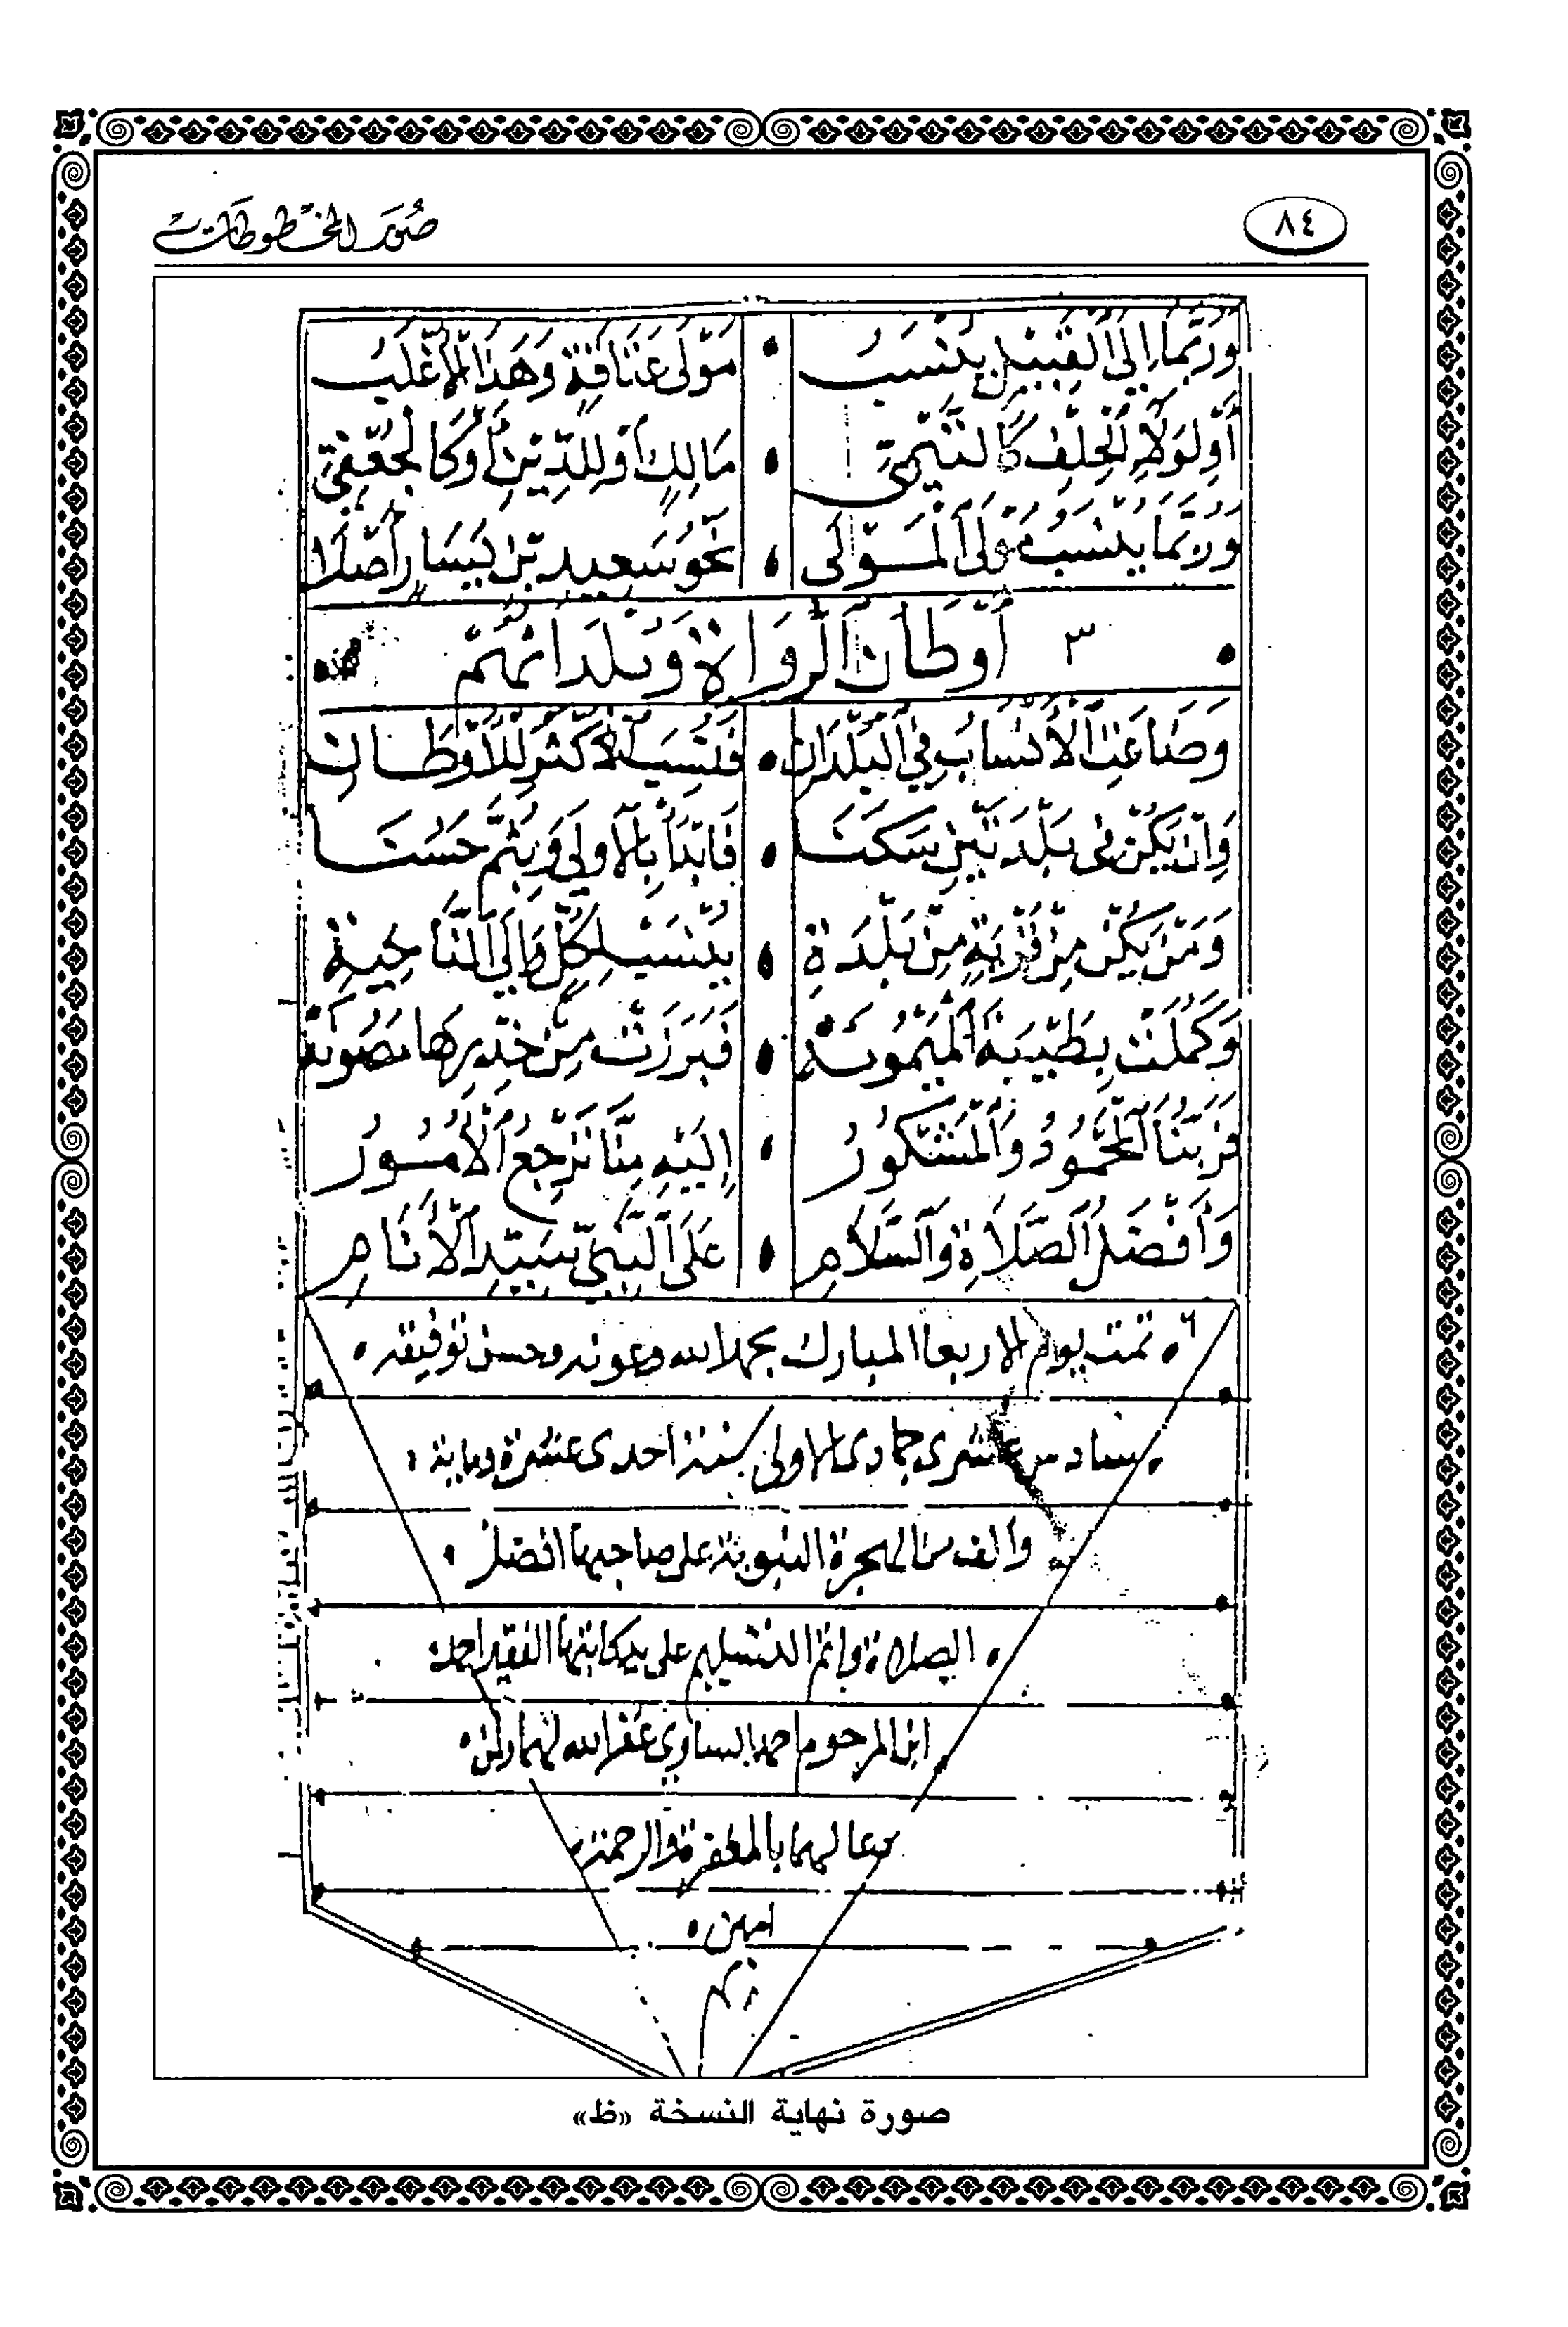 ٨٤
صُوَر المخطوطات
وَرُبَّمَا إِلَى ٱلْقَبِيلِ يُنْسَبُ • مَوْلَى عَتَاقَةٍ وَهَذَا ٱلْأَغْلَبُ
أَوْ لِوَلَاءِ ٱلْحِلْفِ كَالتَّيْمِيِّ • مَالِكٍ أَوْ لِلدِّينِ أَوْ كَالْجُعْفِيِّ
وَرُبَّمَا يُنْسَبُ مَوْلَى ٱلْمَوْلَى • نَحْوُ سَعِيدِ بْنِ يَسَارٍ أَصْلَا
• أَوْطَانُ ٱلرُّوَاةِ وَبُلْدَانُهُمْ
وَضَاعَتِ ٱلْأَنْسَابُ فِي ٱلْبُلْدَانِ • فَنُسِبَ ٱلْأَكْثَرُ لِلْأَوْطَانِ
وَإِنْ يَكُنْ فِي بَلْدَتَيْنِ سَكَنَا • فَابْدَأْ بِالْأُولَى وَبِثُمَّ حَسُنَا
وَمَنْ يَكُنْ مِنْ قَرْيَةٍ مِنْ بَلْدَةِ • يُنْسَبْ لِكُلٍّ وَإِلَى ٱلنَّاحِيَةِ
وَكَمُلَتْ بِطَيْبَةَ ٱلْمَيْمُونَهْ • فَبَرَزَتْ مِنْ خِدْرِهَا مَصُونَهْ
فَرَبُّنَا ٱلْمَحْمُودُ وَٱلْمَشْكُورُ • إِلَيْهِ مِنَّا تَرْجِعُ ٱلْأُمُورُ
وَأَفْضَلُ ٱلصَّلَاةِ وَٱلسَّلَامِ • عَلَى ٱلنَّبِيِّ سَيِّدِ ٱلْأَنَامِ
• تمت يوم الاربعا المبارك بحمد الله وعونه وحسن توفيقه •
• سادس عشرى جمادى الاولى سنة احدى عشرة وماية •
والف من الهجرة النبوية على صاحبها افضل •
• الصلاة واتم التسليم على يد كاتبها الفقير احمد
ابن المرحوم احمد غفر الله لهما ولمن •
دعا لهما بالمغفرة والرحمة
امين •
صورة نهاية النسخة «ظ»